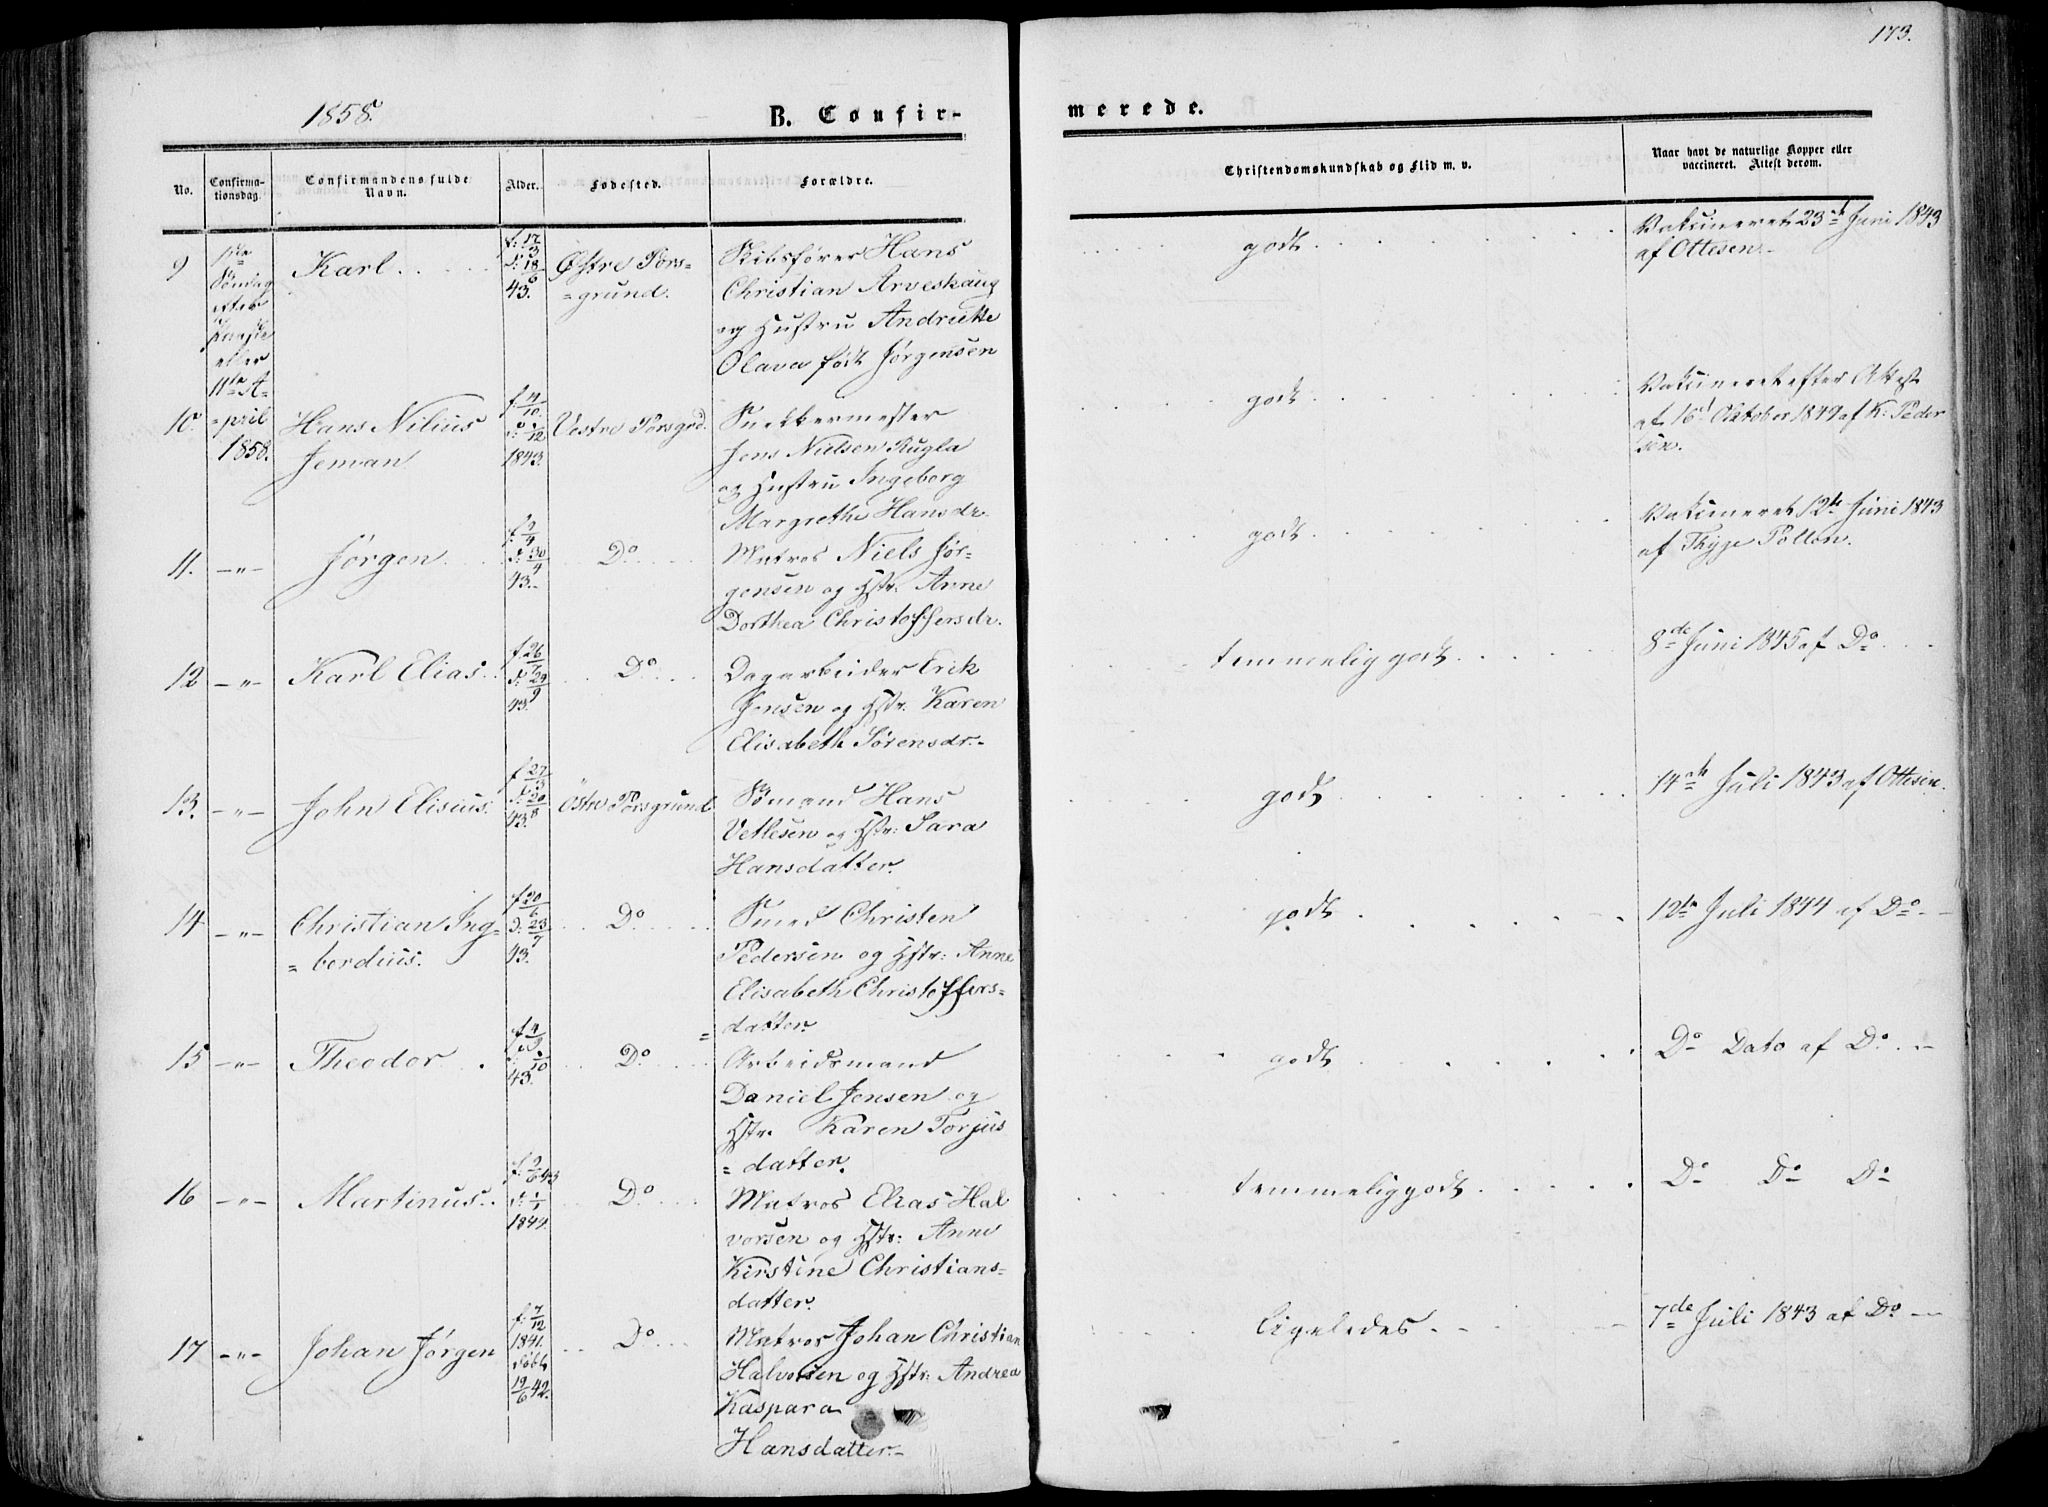 173.
1858.
B. Confir-
merede.
No.
Confirma-
tionsdag.
Confirmandens fulde
Navn.
Alder.
Fødested.
Forældre.
Christendomskundskab og Flid m. v.
Naar havt de naturlige Kopper eller
vaccineret. Attest derom.
9
1ste
Søndag
efter
Paaske
eller
11te A-
=pril
1858.
Karl
f: 17/3
d: 18/6
43.
Østre Pors=
=grund.
Skibsfører Hans
Christian Arveskaug
og Hustru Andrette
Olava født Jørgensen
godt
Vakcineret 23de Juni 1843
af Ottesen.
10.
Hans Nilius
Jeman
f. 4/10
1843.
Vestre Porsgd.
Snekkermester
Jens Nielsen Kugla
og Hustru Ingeborg
Margrethe Hansdr.
godt
Vakcineret efter Attest
af 16d Oktober 1849 af K: Peder
sen.
11.
-"-
Jørgen
f. 2/4
d: 30/4
43.
Do
Matros Niels Jør-
gensen og Hstr: Anne
Dorthea Christoffersdr.
godt
Vakcineret 12te Juni 1843
af Thyge Polton.
12
-"-
Karl Elias
f 26/7
d: 29/9
43.
Do
Dagarbeider Erik
Jensen og Hstr. Karen
Elisabeth Sørensdr.
temmelig godt
8de Juni 1845 af Do
13.
-"-
John Elisius.
f 27/3
d: 20/8
43.
Östre Porsgrund
Sømand Hans
Vetlesen og Hstr: Sara
Hansdatter.
godt
14de Juli 1843 af Ottesen.
14
-"-
Christian Ing=
=bordius.
f 20/6
d. 23/7
43.
Do
Smed Christen
Pedersen og Hstr: Anne
Elisabeth Christoffers=
=datter.
godt
12te Juli 1844 af Do
15
-"-
Theodor
43.
Do
Arbeidsmand
Daniel Jensen og
Hstr. Karen Torjus
=datter.
godt
Do Dato af Do
16
-"-
Martinus.
f: 2/6 43
d: 1/1
1844.
Do
Matros Elias Hal
vorsen og Hstr: Anne
Kirstine Christians=
datter.
temmelig godt
Do Do Do
17
-"-
Johan Jørgen
f: 7/12
1841.
døbt
19/6 42.
Do
Matros Johan Christian
Halvorsen og Hstr: Andrea
Kaspara
Hansdatter.
ligeledes
7de Juli 1843 af Do